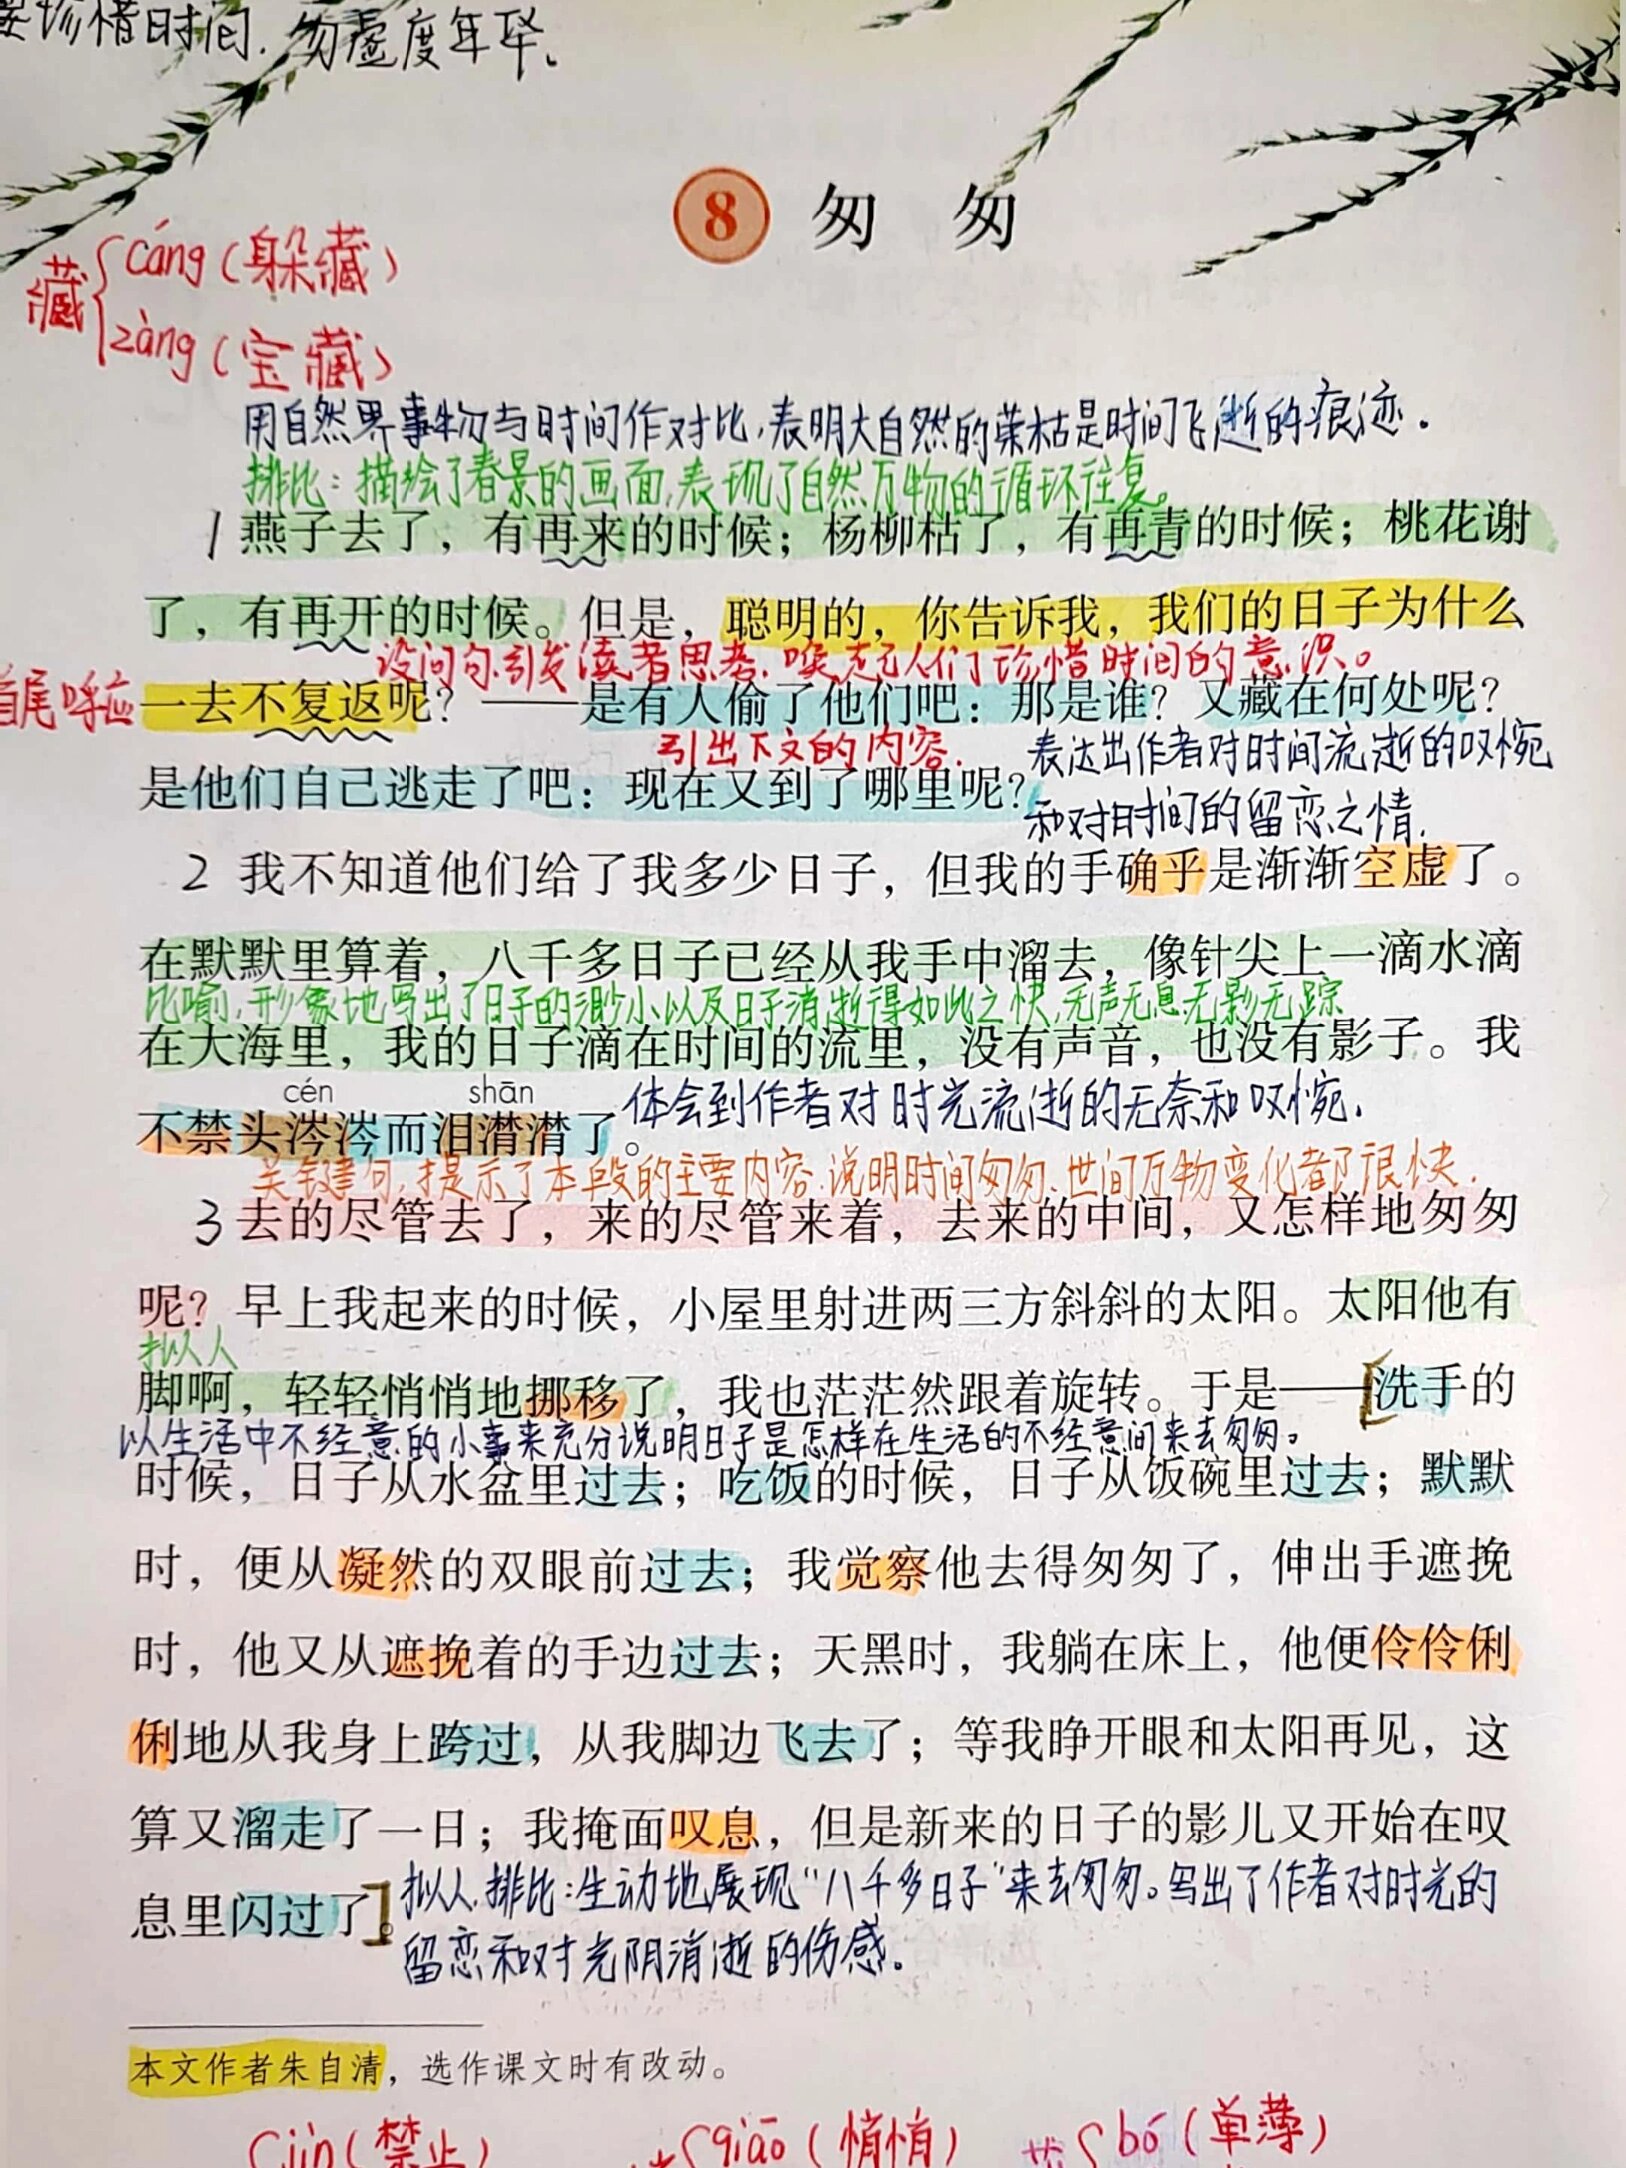 珍惜时间,勿虚度年华。
8 匆匆
藏
cáng(躲藏)
zàng(宝藏)
用自然界事物与时间作对比,表明大自然的荣枯是时间飞逝的痕迹.
排比:描绘了春景的画面,表现了自然万物的循环往复。
1 燕子去了,有再来的时候;杨柳枯了,有再青的时候;桃花谢
了,有再开的时候。但是,聪明的,你告诉我,我们的日子为什么
设问句.引发读者思考,唤起人们珍惜时间的意识。
首尾呼应
一去不复返呢?——是有人偷了他们吧:那是谁?又藏在何处呢?
引出下文的内容.
表达出作者对时间流逝的叹惋
是他们自己逃走了吧:现在又到了哪里呢?
和对时间的留恋之情.
2 我不知道他们给了我多少日子,但我的手确乎是渐渐空虚了。
在默默里算着,八千多日子已经从我手中溜去,像针尖上一滴水滴
比喻,形象地写出了日子的渺小以及日子消逝得如此之快,无声无息,无影无踪
在大海里,我的日子滴在时间的流里,没有声音,也没有影子。我
cén shān
不禁头涔涔而泪潸潸了。
体会到作者对时光流逝的无奈和叹惋.
关键句,提示了本段的主要内容.说明时间匆匆、世间万物变化都很快.
3 去的尽管去了,来的尽管来着,去来的中间,又怎样地匆匆
呢?早上我起来的时候,小屋里射进两三方斜斜的太阳。太阳他有
拟人
脚啊,轻轻悄悄地挪移了,我也茫茫然跟着旋转。于是——[洗手的
以生活中不经意的小事来充分说明日子是怎样在生活的不经意间来去匆匆。
时候,日子从水盆里过去;吃饭的时候,日子从饭碗里过去;默默
时,便从凝然的双眼前过去;我觉察他去得匆匆了,伸出手遮挽
时,他又从遮挽着的手边过去;天黑时,我躺在床上,他便伶伶俐
俐地从我身上跨过,从我脚边飞去了;等我睁开眼和太阳再见,这
算又溜走了一日;我掩面叹息,但是新来的日子的影儿又开始在叹
息里闪过了]。
拟人.排比:生动地展现“八千多日子”来去匆匆。写出了作者对时光的
留恋和对光阴消逝的伤感。
本文作者朱自清,选作课文时有改动。
jìn(禁止)
qiāo(悄悄)
bó(单薄)